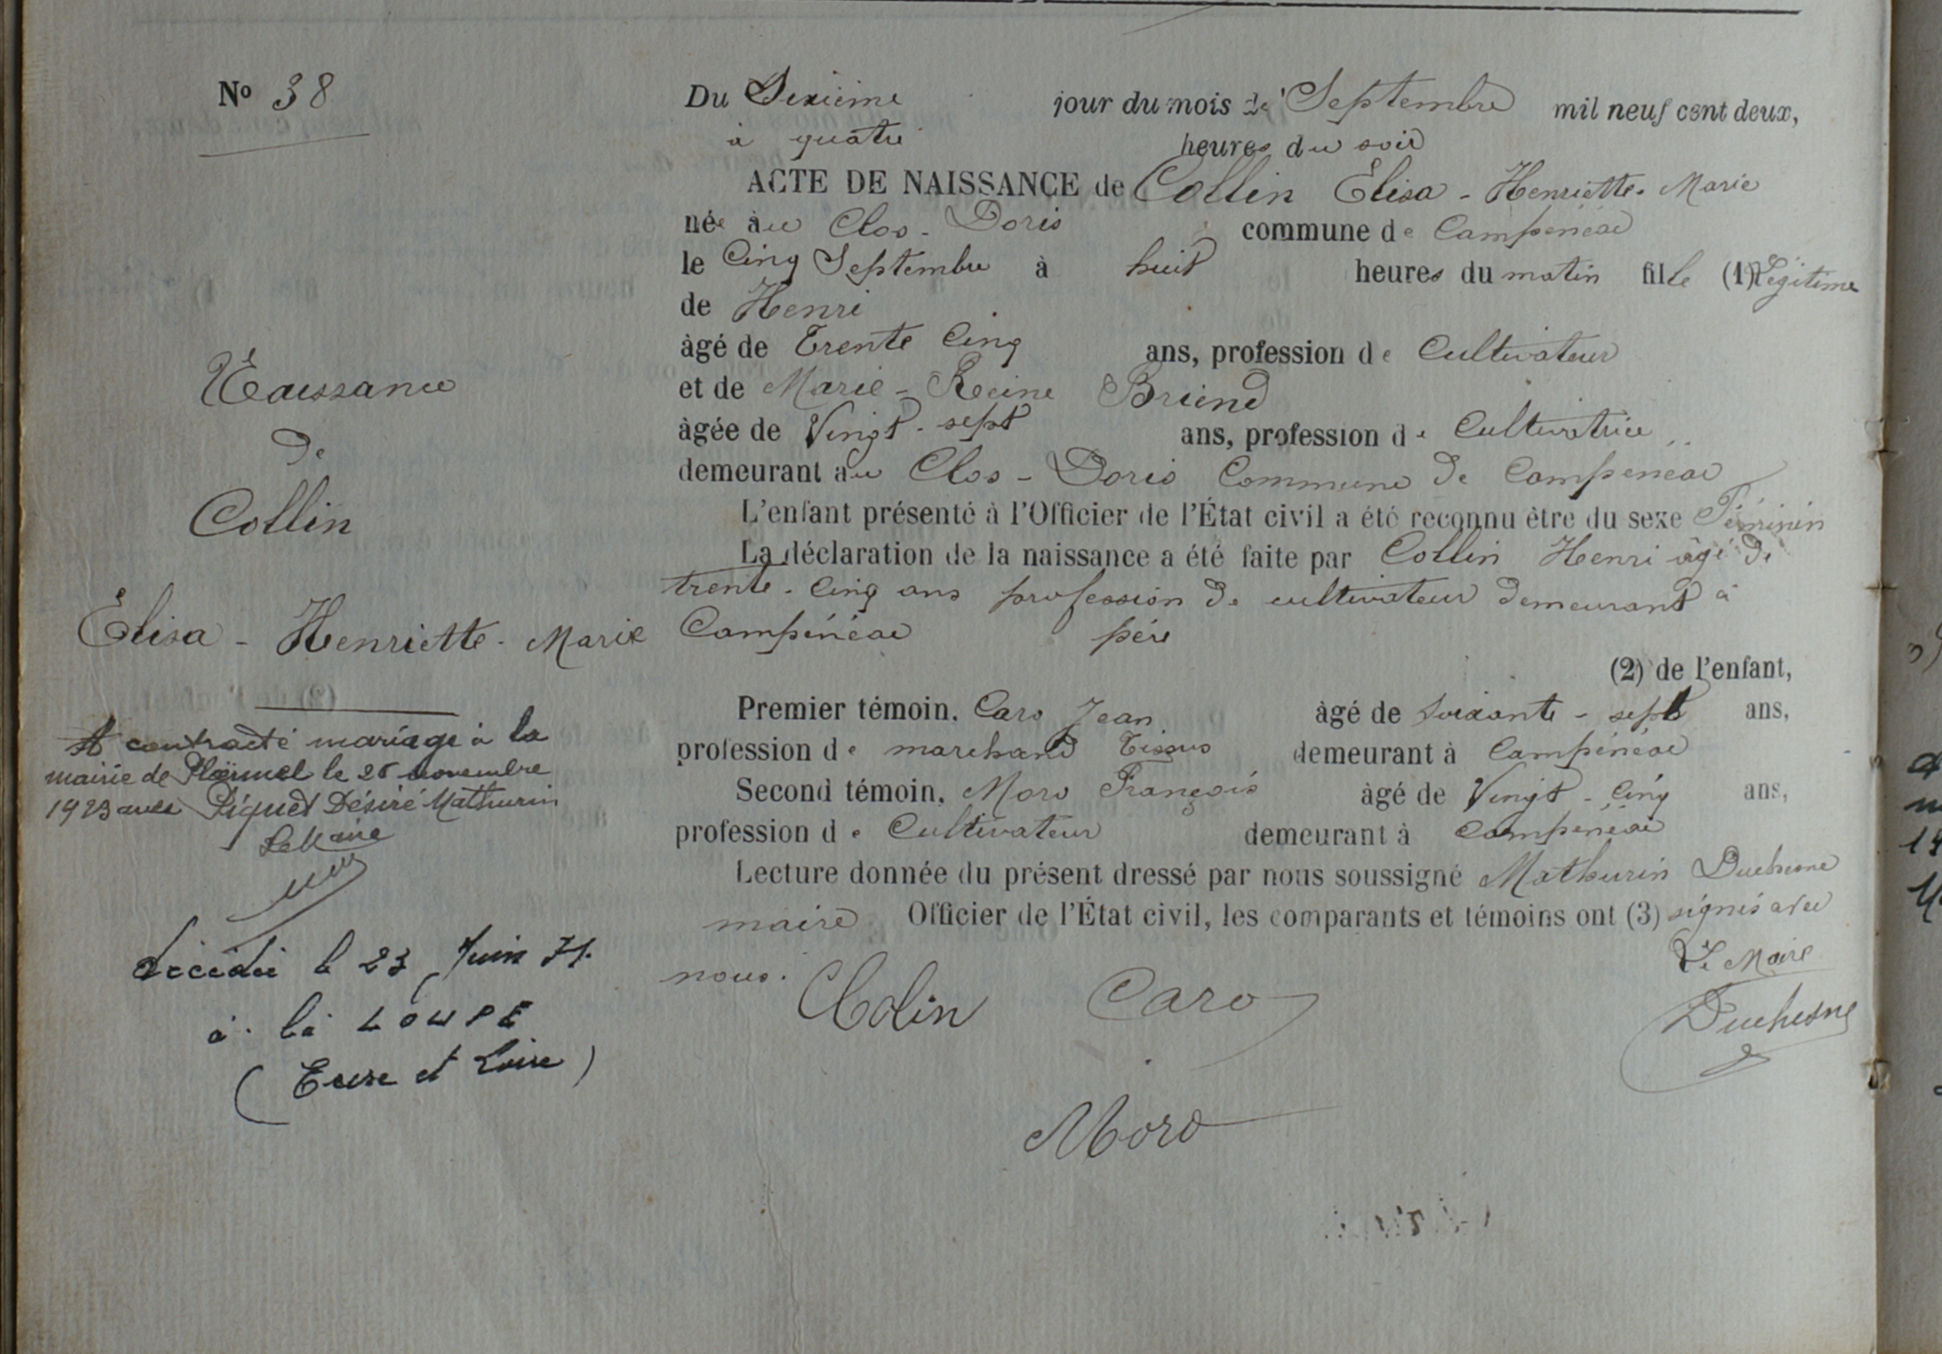 No 38
Du Sixième jour du mois de Septembre mil neuf cent deux,
à quatre heures du soir
ACTE DE NAISSANCE de Collin Elisa - Henriette - Marie
née au Clos - Doris commune de Campénéac
le Cinq Septembre à huit heures du matin fille (1) Légitime
de Henri
âgé de Trente Cinq ans, profession de Cultivateur
et de Marie - Reine Briend
âgée de Vingt - sept ans, profession de Cultivatrice
demeurant au Clos - Doris Commune de Campeneac
L'enfant présenté à l'Officier de l'État civil a été reconnu être du sexe Féminin
La déclaration de la naissance a été faite par Collin Henri âgé de
trente - Cinq ans profession de cultivateur demeurant à
Campénéac père
(2) de l'enfant,
Premier témoin, Caro Jean âgé de soixante - sept ans,
profession de marchand Tissus demeurant à Campénéac
Second témoin, Moro François âgé de Vingt - Cinq ans,
profession de Cultivateur demeurant à Campénéac
Lecture donnée du présent dressé par nous soussigné Mathurin Duchesne
maire Officier de l'État civil, les comparants et témoins ont (3) signés avec
nous.
Le Maire
Colin Caro Duchesne
Moro
Naissance
de
Collin
Elisa - Henriette - Marie
A contracté mariage à la
mairie de Ploërmel le novembre
1923 avec Piquet Désiré Mathurin
Le Maire
décédée le 23 Juin 71
à la LOUPE
(Eure et Loire)